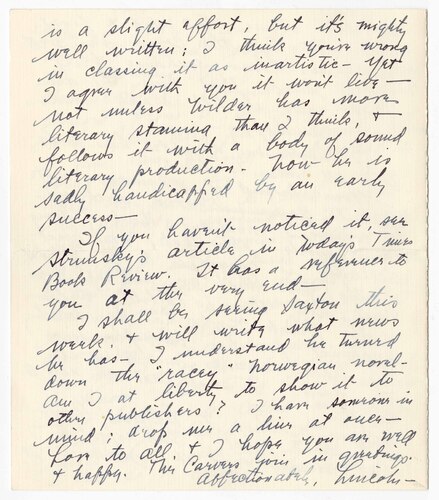 is a slight effort, but it's mighty
well written; I think you're wrong
in classing it as inartistic - Yet
I agree with you it won't live -
not unless Wilder has more
literary stamina than I think, &
follows it with a body of sound
literary production. Now he is
sadly handicapped by an early
success -
If you haven't noticed it, see
Strunsky's article in today's Times
Book Review. It has a reference to
you at the very end -
I shall be seeing Saxton this
week & will write what news
he has - I understand he turned
down the "racey" Norwegian novel -
Am I at liberty to show it to
other publishers? I have someone in
mind; drop me a line at once -
Love to all & I hope you are well
& happy. The Carvers join in greetings.
Affectionately, Lincoln -